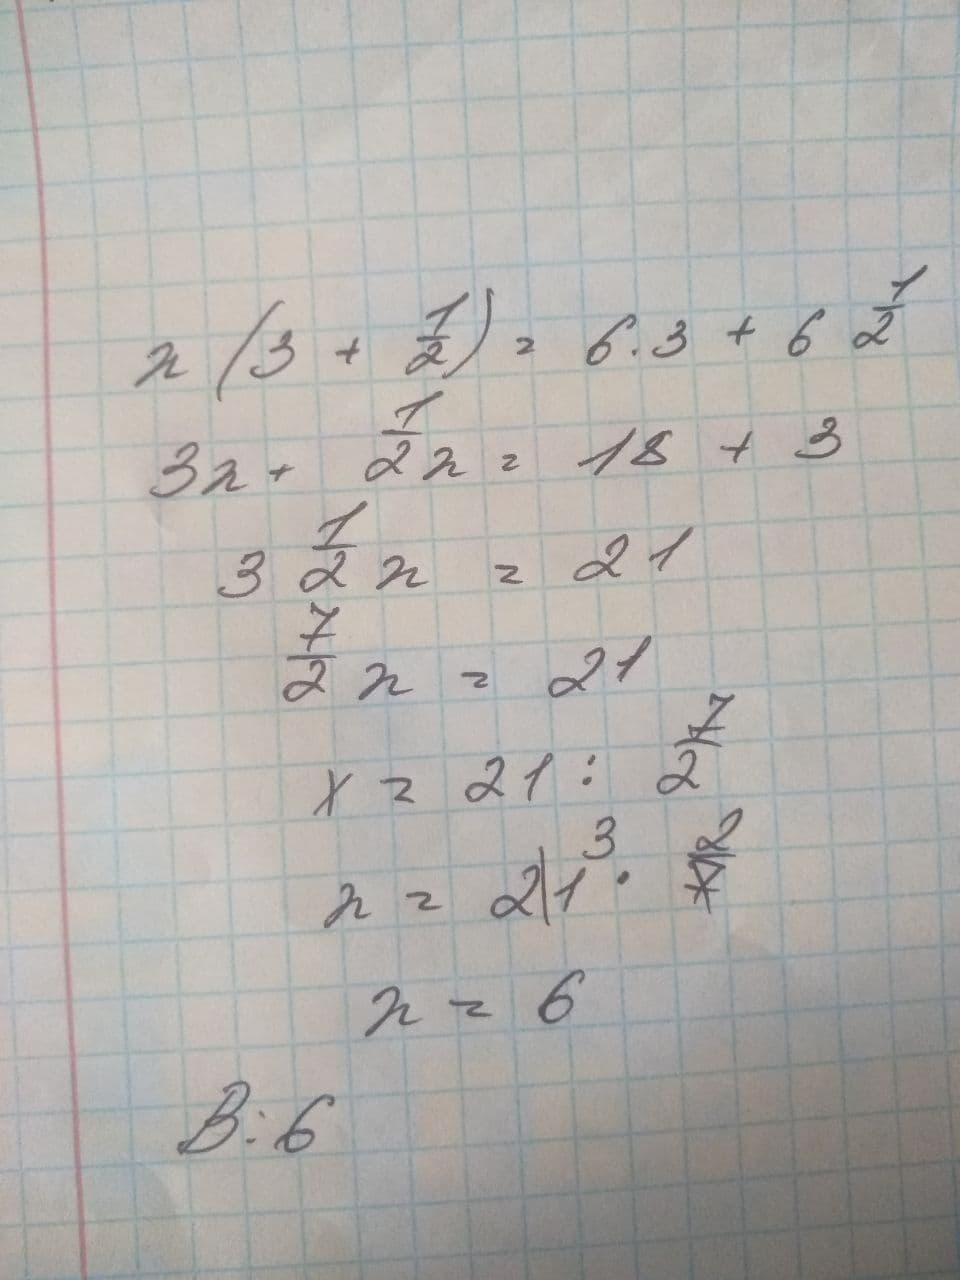 x (3 + 1/2) = 6·3 + 6 1/2
3x + 1/2 x = 18 + 3
3 1/2 x = 21
7/2 x = 21
x = 21 : 7/2
x = 21 3 · 2/7
x = 6
В: 6